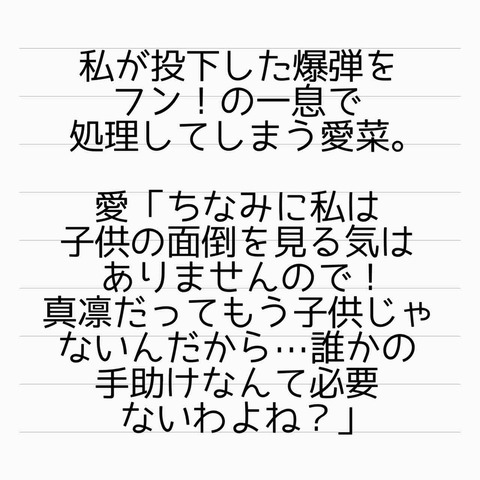 私が投下した爆弾を
フン！の一息で
処理してしまう愛菜。
愛「ちなみに私は
子供の面倒を見る気は
ありませんので！
真凛だってもう子供じゃ
ないんだから…誰かの
手助けなんて必要
ないわよね？」